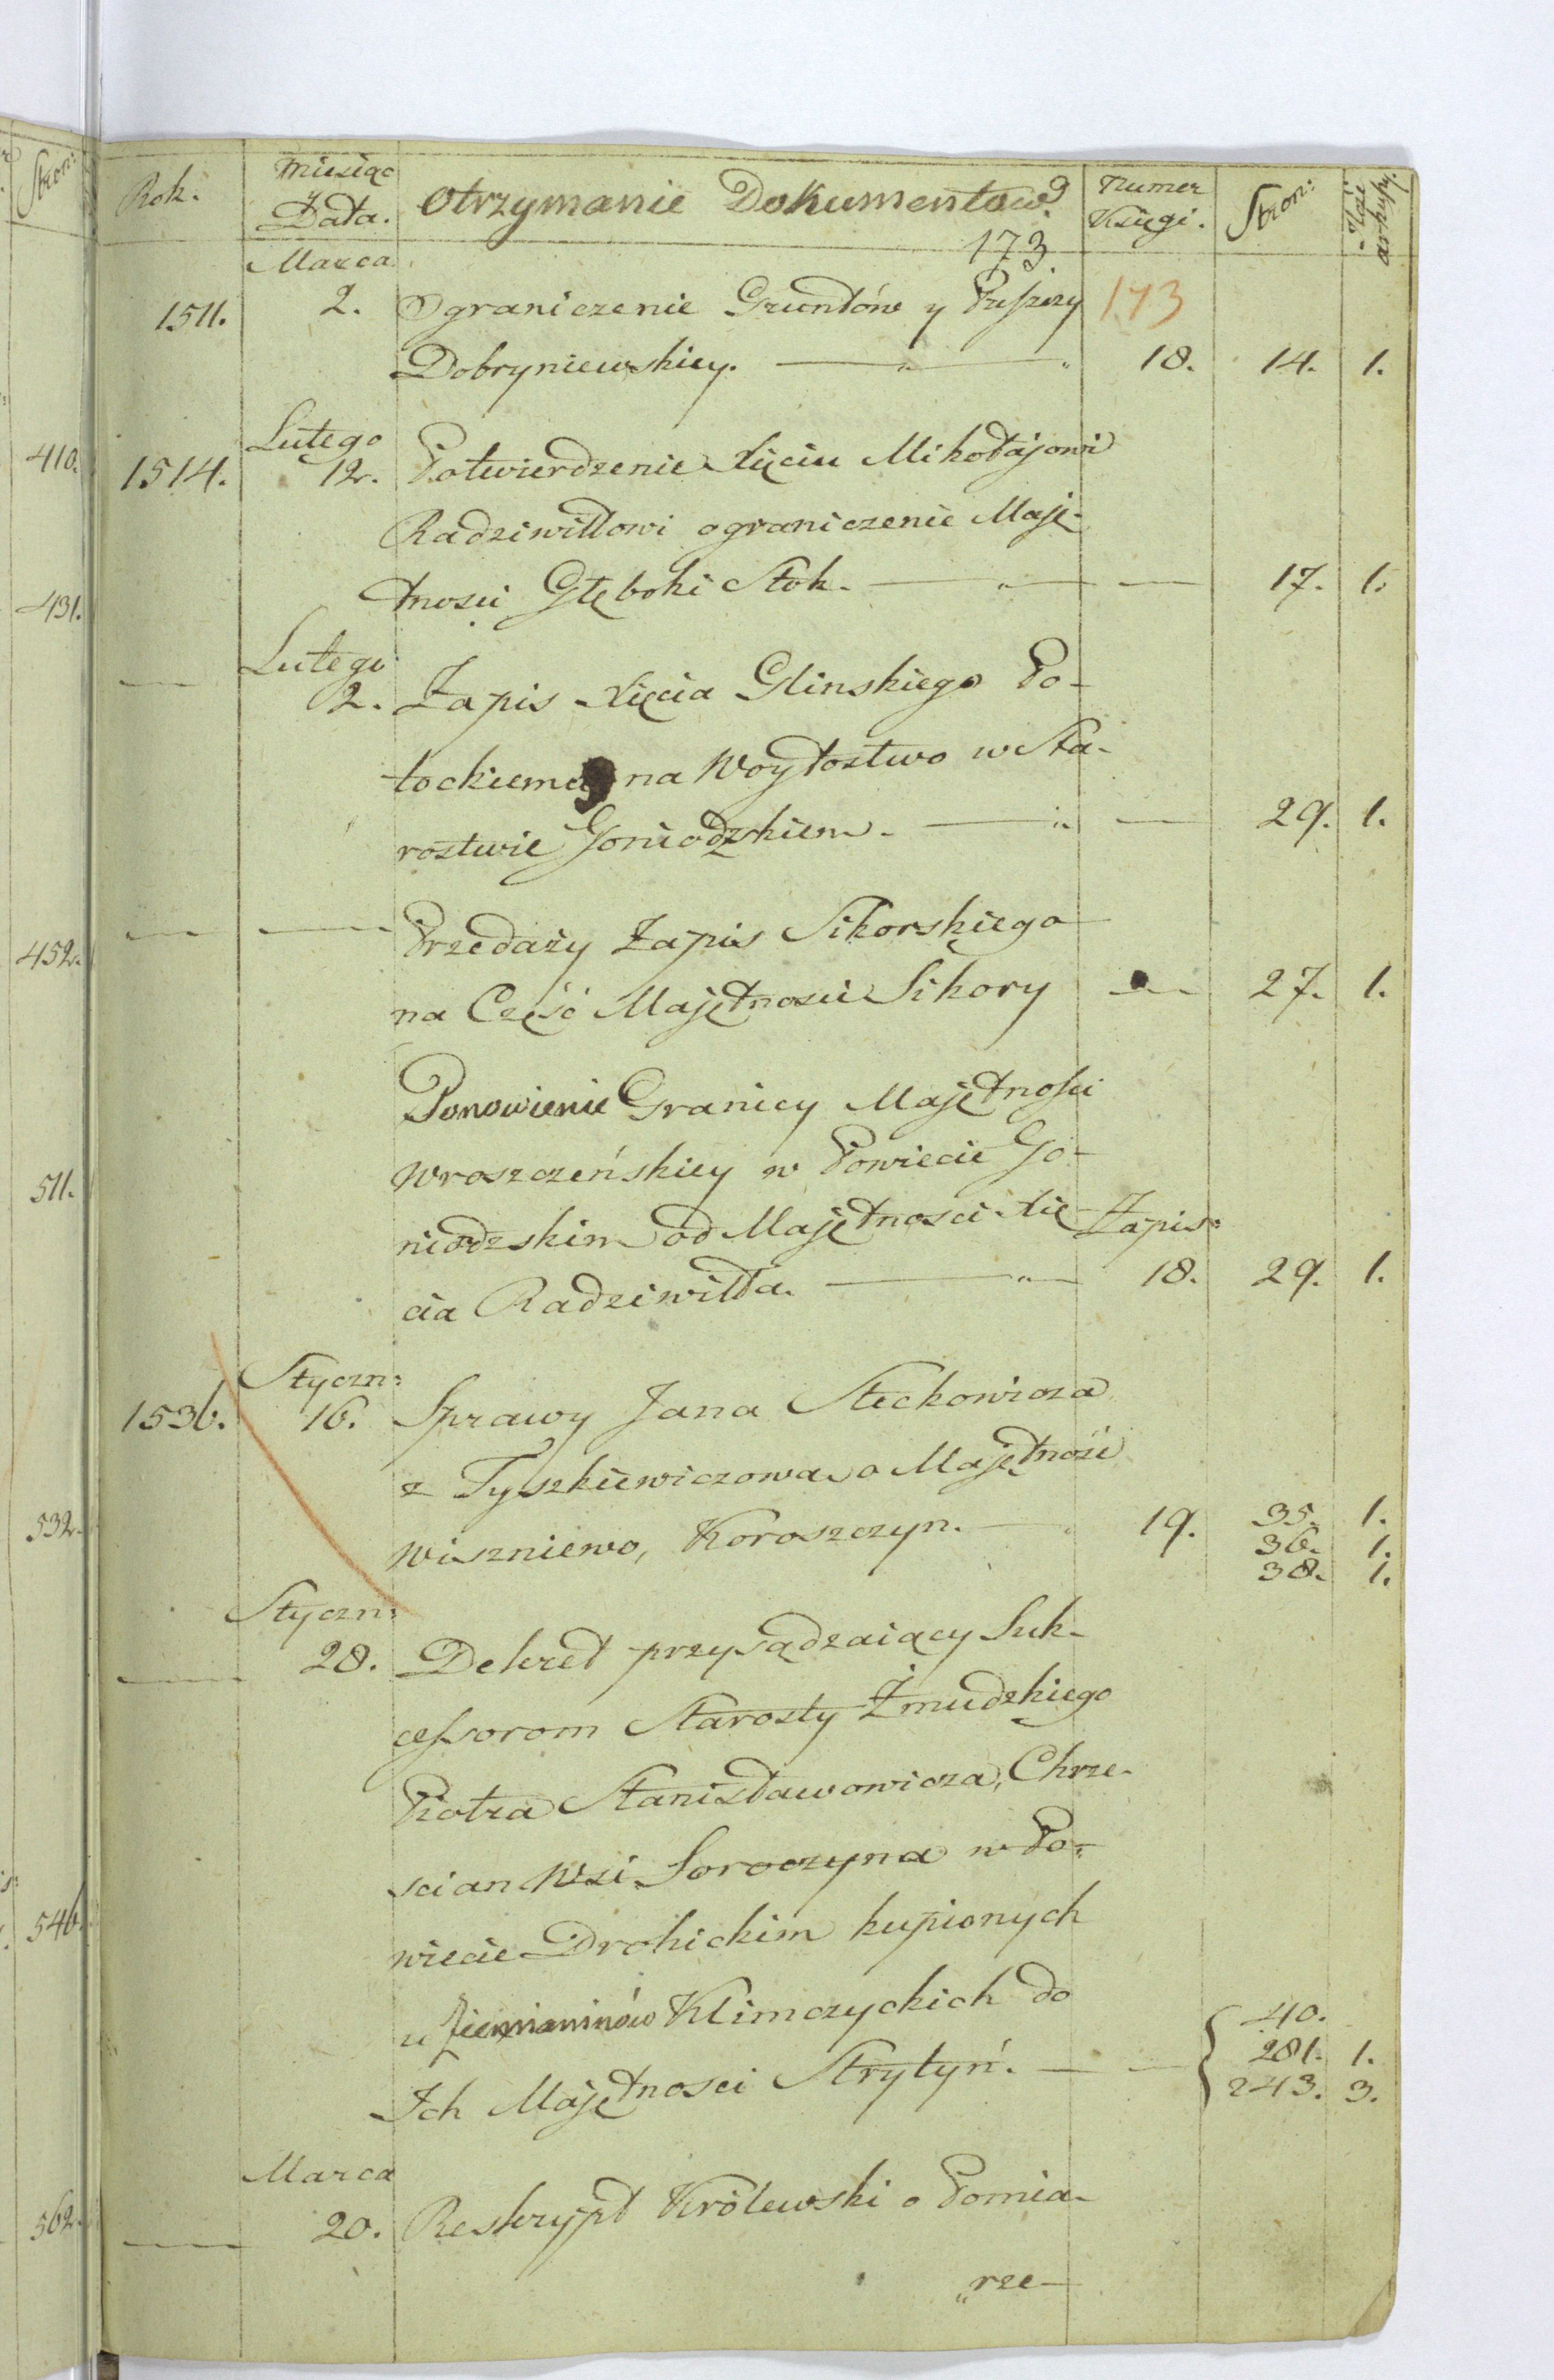 Stron:
410.
431.
452.
511.
532.
546.
562.
Rok. Miesiąc y Data. Otrzymanie Dokumentow. Numer Księgi. Stron: Ilość arkuszy.
173
Marca
1511. 2. Ograniczenie Gruntów y Puszczy 173
Dobryniewskiey. 18. 14. 1.
Lutego
1514. 12. Potwierdzenie Xięciu Mikołajowi
Radziwiłłowi ograniczenie Maję-
tnosci Głęboki Stok. — 17. 1.
Lutego
— 2. Zapis Xięcia Glinskiego Po-
tockiemu na Woytostwo w Sta-
rostwie Goniądzkiem. — 29. 1.
— — Przedaży Zapis Sikorskiego
na Część Majętnosci Sikory — 27. 1.
Ponowienie Granicy Majętnosci
Wroszczeńskiey w Powiecie Go-
niądzskim od Majętnosci Xię- Zapis:
cia Radziwiłła. — 18. 29. 1.
Styczn:
1536. 16. Sprawy Jana Steckowicza
z Tyszkiewiczowa o Majętność
Wiszniewo, Koroszczyn. — 19. 35. 1.
36. 1.
38. 1.
Styczn:
— 28. Dekret przysądzaiący Suk-
cessorom Starosty Żmudzkiego
Piotra Stanisławowicza, Chrze-
scian Wsi Soroczyna w Po-
wiecie Drohickim kupionych
u Ziemianinów Klimczyckich do 40.
Ich Majętnosci Strytyń. — — 281. 1.
243. 3.
Marca
— 20. Reskrypt Królewski o Pomia-
„rze—